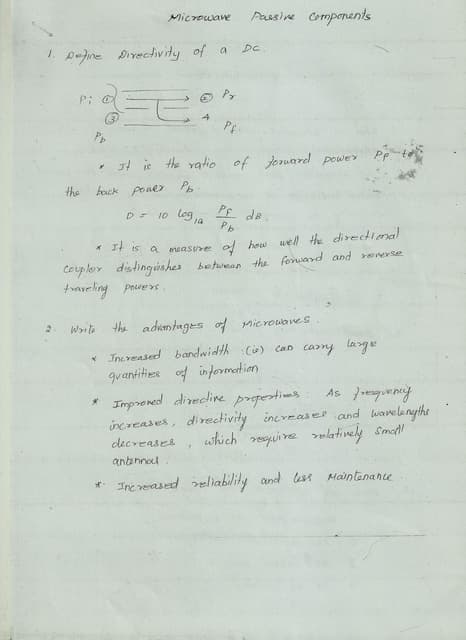 Microwave Passive Components
1. Define Directivity of a DC.
Pi ① ② Pr
③ 4
Pb Pf
* It is the ratio of forward power Pf to
the back power Pb.
D = 10 log10 Pf/Pb dB.
* It is a measure of how well the directional
coupler distinguishes between the forward and reverse
traveling powers.
2. Write the advantages of Microwaves.
* Increased bandwidth :(ie) can carry large
quantities of information
* Improved directive properties : As frequency
increases, directivity increases and wavelengths
decreases, which require relatively small
antennas.
* Increased reliability and less Maintenance